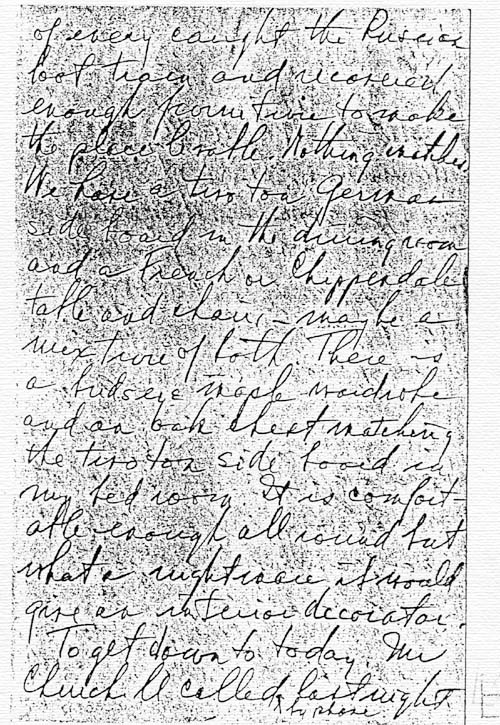 of every caught the Russian
loot train and recovered
enough furniture to make
the place livable. Nothing matches.
We have a two ton German
side board in the dining room
and a French or Chippendale
table and chairs, - maybe a
mixture of both. There is
a birdseye maple wardrobe
and an oak chest matching
the two ton side board in
my bed room. It is comfort-
able enough all round but
what a nightmare it would
give an interior decorator.
To get down to today. Mr
Churchill called last night
by phone